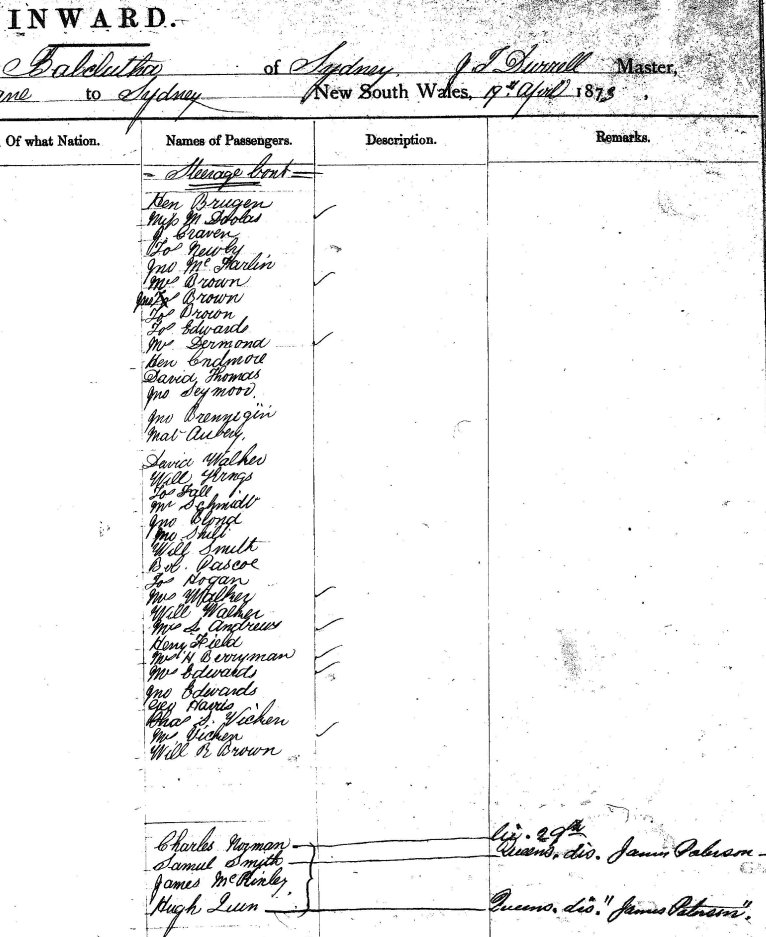 INWARD.
Balclutha of Sydney, J T Durrell Master,
ane to Sydney New South Wales, 19th April 1873,
Of what Nation. Names of Passengers. Description. Remarks.
Steerage Cont
Hen Brugen
Miss M
J Craven
Jos Newby
Jno Mc Farlin
Mrs Brown
Brown
Jos Brown
Jos Edwards
Mrs Dermond
Hen Endmore
David Thomas
Jno Seymoor.
Jno
Mat Aubery,
David Walker
Will
Jos Fall
Mr Schmidt
Jno Blond
Will Smith
Pascoe
Jos Hogan
Mrs Walker
Will Walker
Mrs S. Andrews
Heny Field
Mrs H Berryman
Mrs Edwards
Jno Edwards
Geo Harris
Chas S. Vicken
Mrs Vicken
Will R Brown
29th
Charles Norman Queens. dis. James Paterson
Samul Smith
James McKinley
Hugh Queens. dis. "James Paterson".